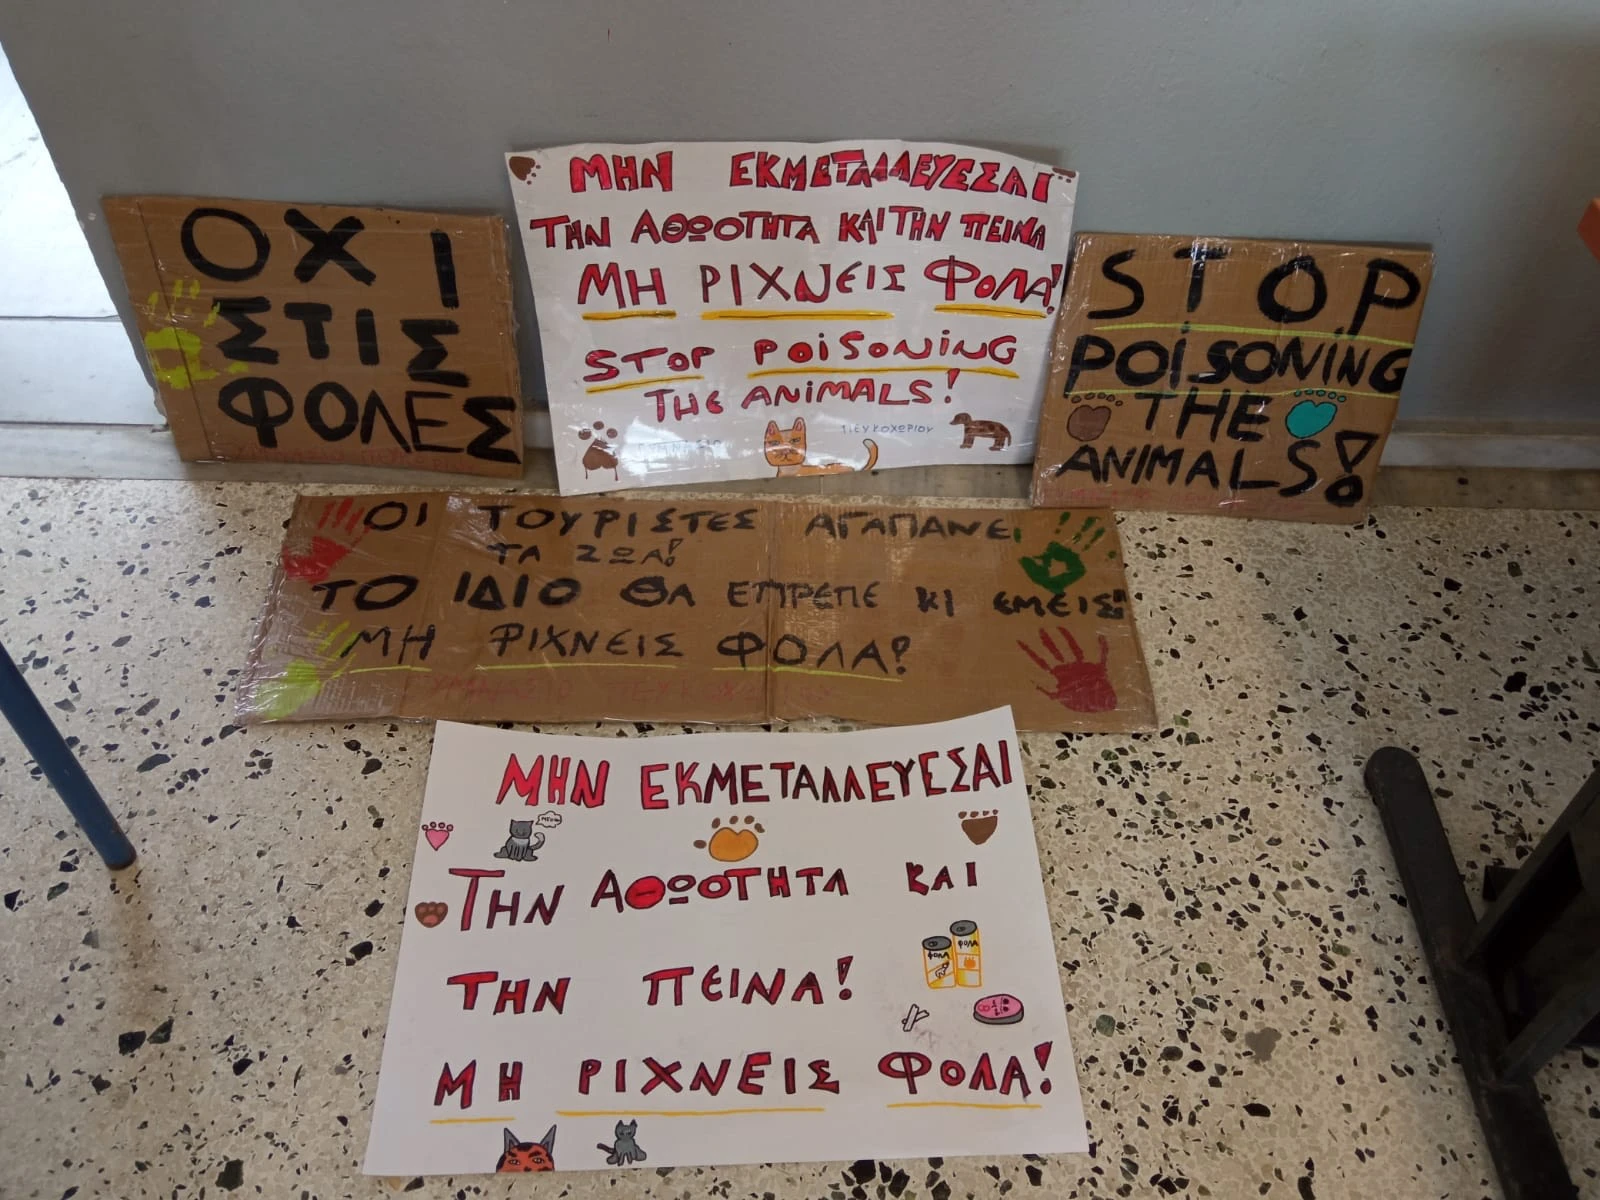 ΟΧΙ
ΣΤΙΣ
ΦΟΛΕΣ
ΜΗΝ ΕΚΜΕΤΑΛΛΕΥΕΣΑΙ
ΤΗΝ ΑΘΩΟΤΗΤΑ ΚΑΙ ΤΗΝ ΠΕΙΝΑ
ΜΗ ΡΙΧΝΕΙΣ ΦΟΛΑ!
STOP POiSONiNG
THE ANIMALS!
ΓΥΜΝΑΣΙΟ ΠΕΥΚΟΧΩΡΙΟΥ
STOP
POiSONING
THE
ANIMALS!
ΟΙ ΤΟΥΡΙΣΤΕΣ ΑΓΑΠΑΝΕ
ΤΑ ΖΩΑ!
ΤΟ ΙΔΙΟ ΘΑ ΕΠΡΕΠΕ ΚΙ ΕΜΕΙΣ!
ΜΗ ΡΙΧΝΕΙΣ ΦΟΛΑ!
ΜΗΝ ΕΚΜΕΤΑΛΛΕΥΕΣΑΙ
ΤΗΝ ΑΘΩΟΤΗΤΑ ΚΑΙ
ΤΗΝ ΠΕΙΝΑ!
ΦΟΛΑ ΦΟΛΑ
ΜΗ ΡΙΧΝΕΙΣ ΦΟΛΑ!